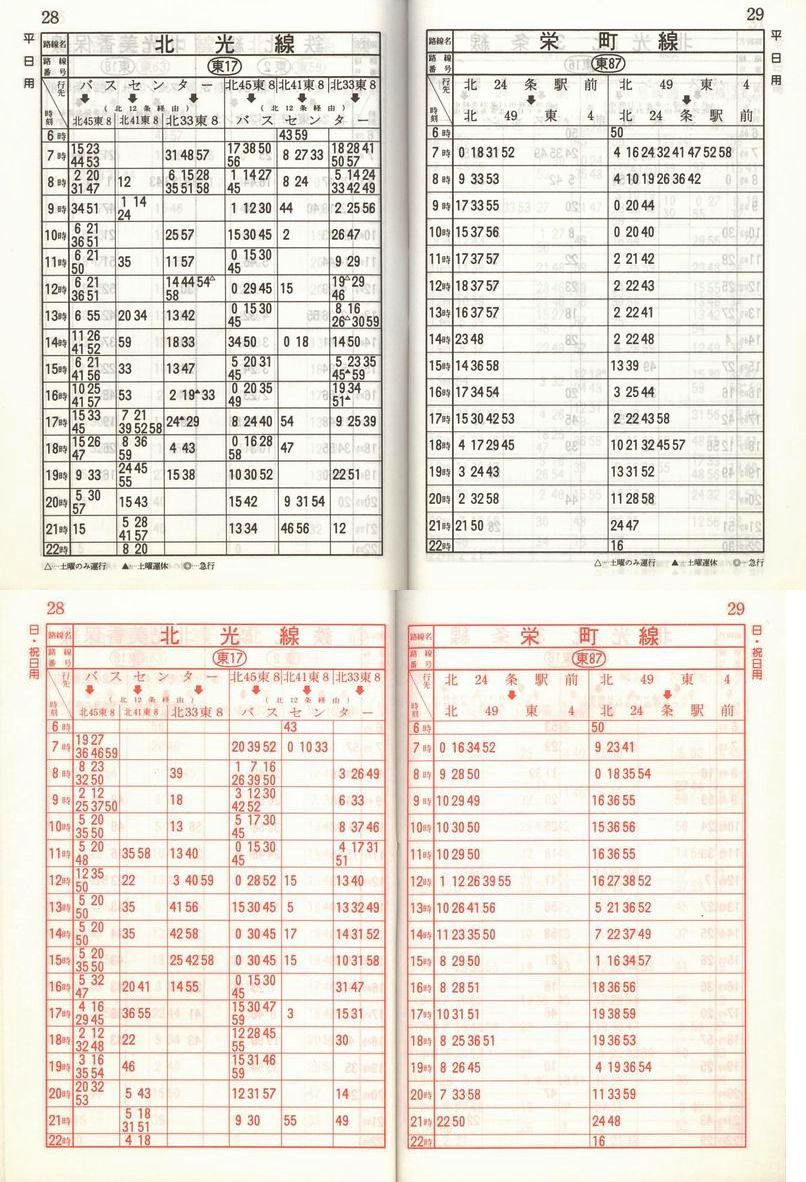 28
平日用
路線名 北光線
路線番号 東17
行先 バスセンター 北45東8 北41東8 北33東8
(北12条経由) (北12条経由)
時刻 北45東8 北41東8 北33東8 バスセンター
6時 43 59
7時 15 23 44 53 31 48 57 17 38 50 56 8 27 33 18 28 41 50 57
8時 2 20 31 47 12 6 15 28 35 51 58 1 14 27 45 8 24 5 14 24 33 42 49
9時 34 51 1 14 24 1 12 30 44 2 25 56
10時 6 21 36 51 25 57 15 30 45 2 26 47
11時 6 21 50 35 11 57 0 15 30 45 9 29
12時 6 21 36 51 14 44 54△ 58 0 29 45 15 19△ 29 46
13時 6 55 20 34 13 42 0 15 30 45 8 16 26△ 30 59
14時 11 26 41 52 59 18 33 34 50 0 18 14 50
15時 6 21 41 56 33 13 47 5 20 31 45 5 23 35 45▲ 59
16時 10 25 41 57 53 2 19▲ 33 0 20 35 49 19 34 51▲
17時 15 33 45 7 21 39 52 58 24▲ 29 8 24 40 54 9 25 39
18時 15 26 47 8 36 59 4 43 0 16 28 58 47
19時 9 33 24 45 55 15 38 10 30 52 22 51
20時 5 30 57 15 43 15 42 9 31 54
21時 15 5 28 41 57 13 34 46 56 12
22時 8 20
△…土曜のみ運行 ▲…土曜運休 ◎…急行
29
平日用
路線名 栄町線
路線番号 東87
行先 北24条駅前 北49東4
時刻 北49東4 北24条駅前
6時 50
7時 0 18 31 52 4 16 24 32 41 47 52 58
8時 9 33 53 4 10 19 26 36 42
9時 17 33 55 0 20 44
10時 15 37 56 0 20 40
11時 17 37 57 2 21 42
12時 18 37 57 2 22 43
13時 16 37 57 2 22 41
14時 23 48 2 22 48
15時 14 36 58 13 39
16時 17 34 54 3 25 44
17時 15 30 42 53 2 22 43 58
18時 4 17 29 45 10 21 32 45 57
19時 3 24 43 13 31 52
20時 2 32 58 11 28 58
21時 21 50 24 47
22時 16
△…土曜のみ運行 ▲…土曜運休 ◎…急行
28
日・祝日用
路線名 北光線
路線番号 東17
行先 バスセンター 北45東8 北41東8 北33東8
(北12条経由) (北12条経由)
時刻 北45東8 北41東8 北33東8 バスセンター
6時 43
7時 19 27 36 46 59 20 39 52 0 10 33
8時 8 23 32 50 39 1 7 16 26 39 50 3 26 49
9時 2 12 25 37 50 18 3 12 30 42 52 6 33
10時 5 20 35 50 13 5 17 30 45 8 37 46
11時 5 20 48 35 58 13 40 0 15 30 45 4 17 31 51
12時 12 35 50 22 3 40 59 0 28 52 15 13 40
13時 5 20 50 35 41 56 15 30 45 5 13 32 49
14時 5 20 50 35 42 58 0 30 45 17 14 31 52
15時 5 20 35 50 25 42 58 0 30 45 15 10 31 58
16時 5 32 47 20 41 14 55 0 15 30 45 31 47
17時 4 16 29 45 36 55 15 30 47 59 3 15 31
18時 2 12 32 48 22 12 28 45 55 30
19時 3 16 35 54 46 15 31 46 59
20時 20 32 53 5 43 12 31 57 14
21時 5 18 31 51 9 30 55 49
22時 4 18
29
日・祝日用
路線名 栄町線
路線番号 東87
行先 北24条駅前 北49東4
時刻 北49東4 北24条駅前
6時 50
7時 0 16 34 52 9 23 41
8時 9 28 50 0 18 35 54
9時 10 29 49 16 36 55
10時 10 30 50 15 36 56
11時 10 29 50 16 36 55
12時 1 12 26 39 55 16 27 38 52
13時 10 26 41 56 5 21 36 52
14時 11 23 35 50 7 22 37 49
15時 8 29 50 1 16 34 57
16時 8 28 51 18 36 56
17時 10 31 51 19 38 59
18時 8 25 36 51 19 36 53
19時 8 26 45 4 19 36 54
20時 7 33 58 11 33 59
21時 22 50 24 48
22時 16